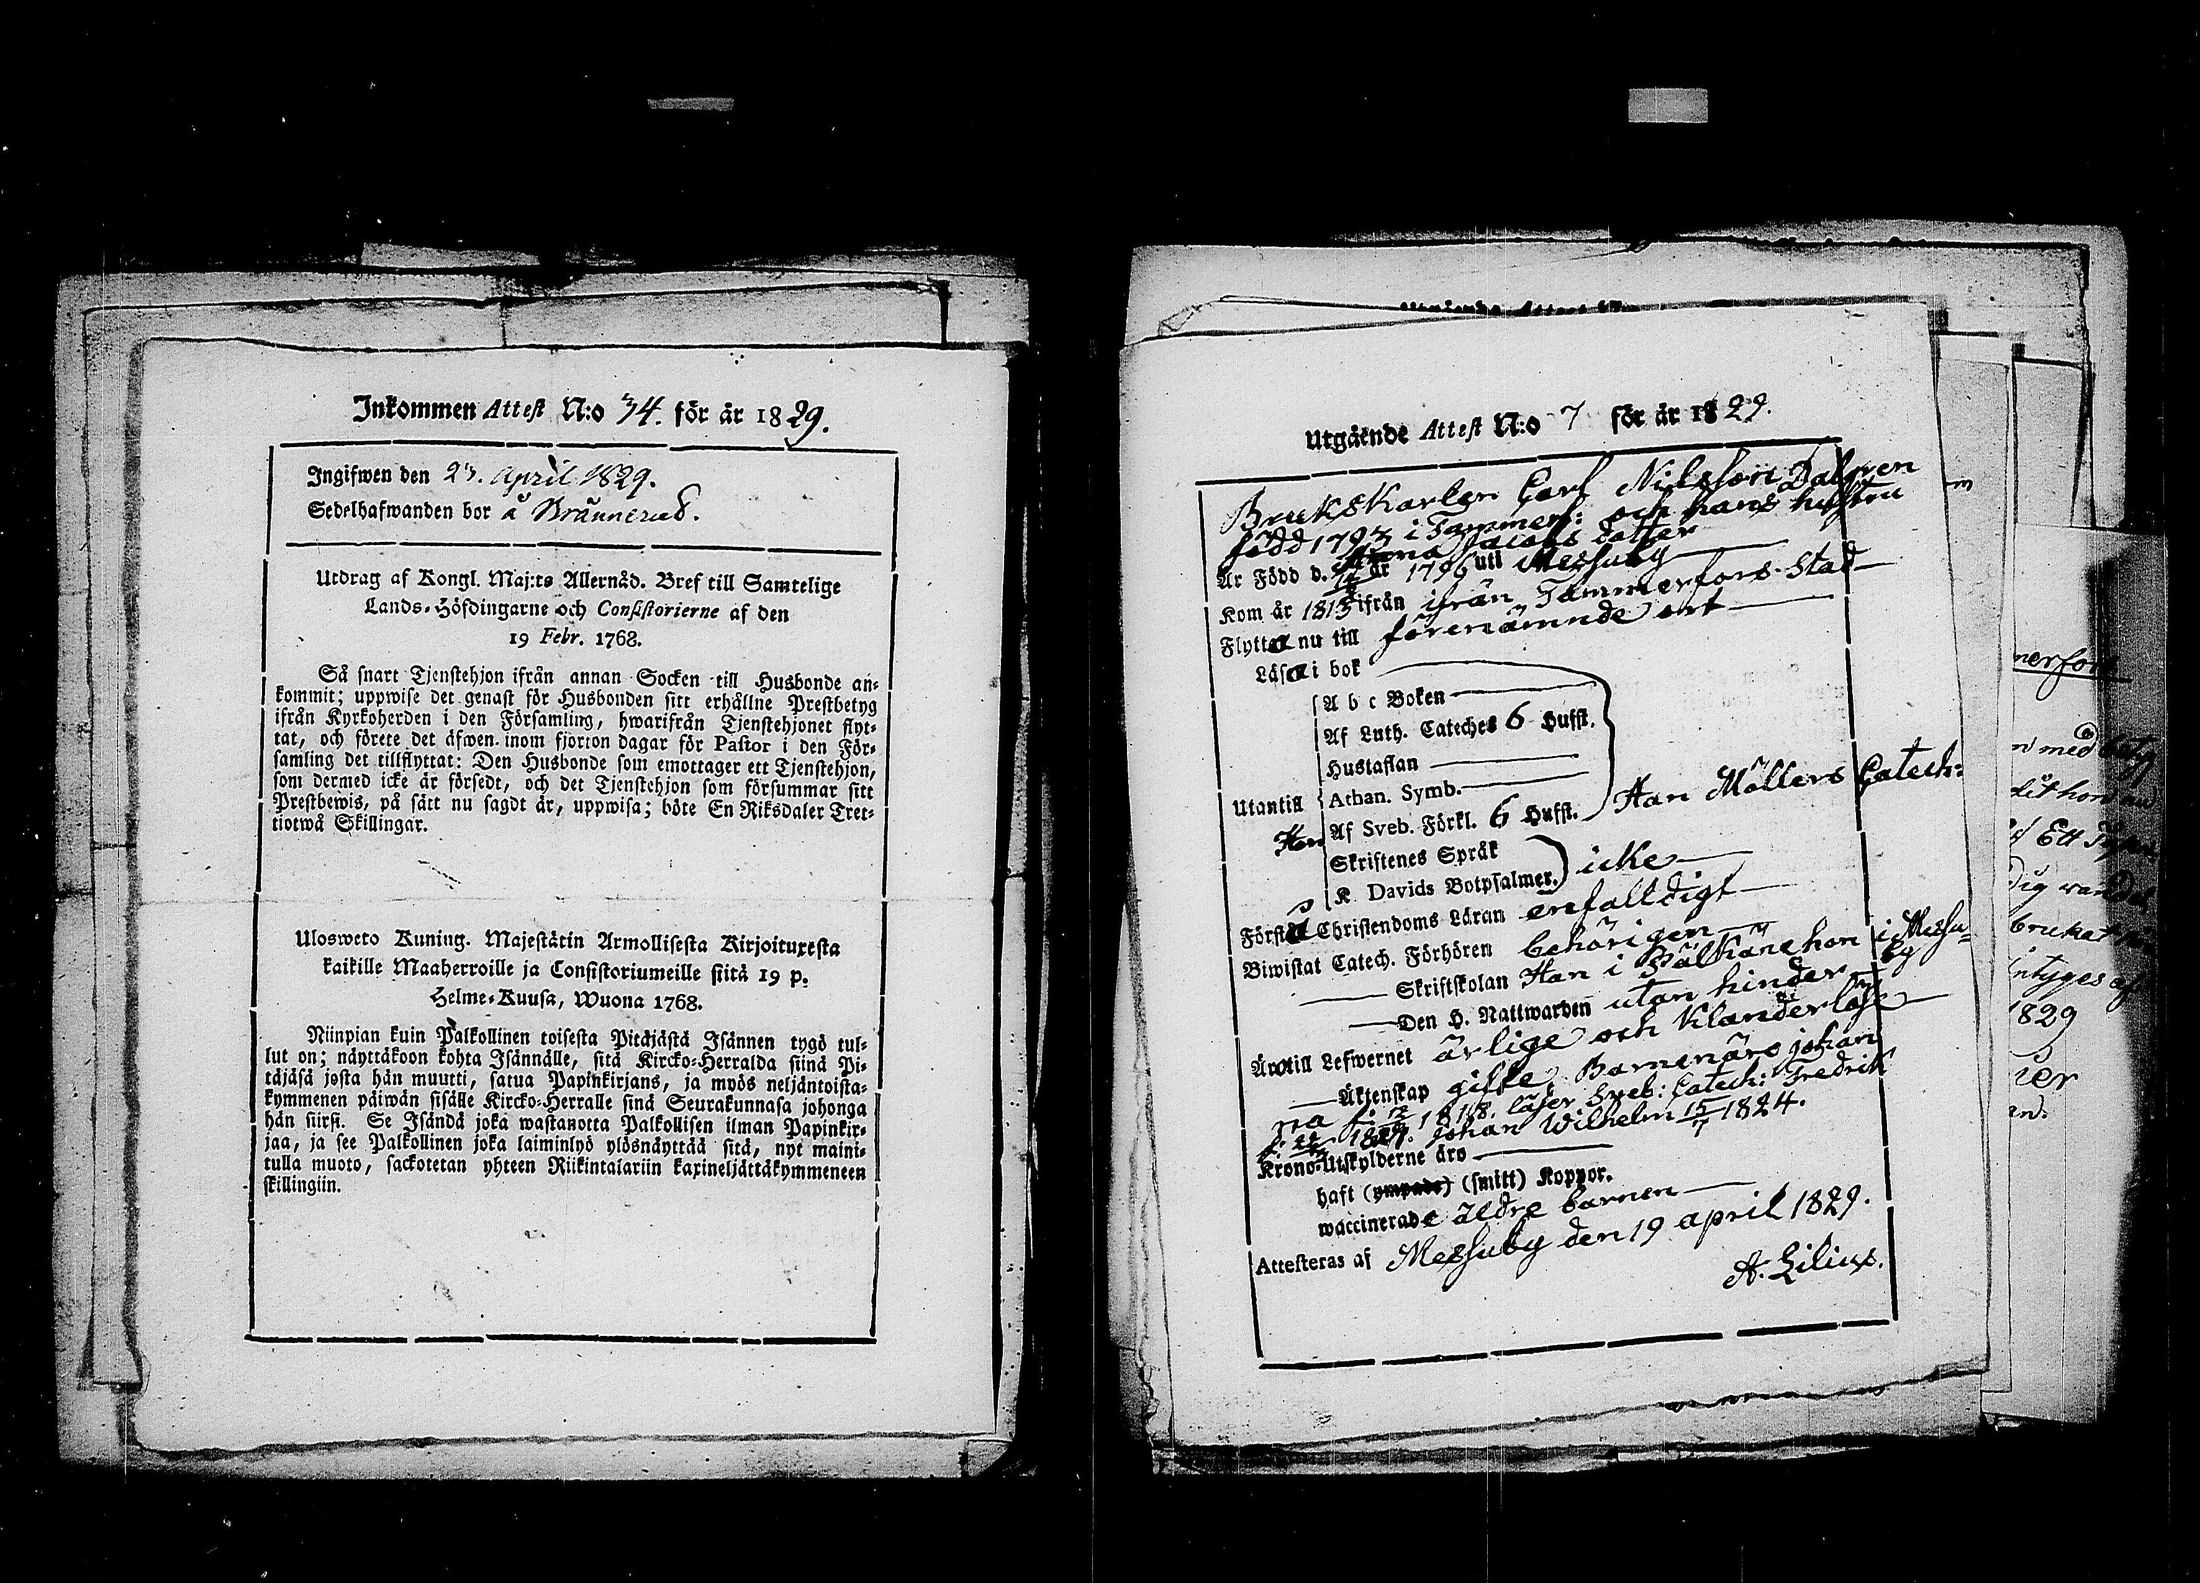 Inkommen Attest N:o 34. för år 1829.
Ingifwen den 23. April 1829.
Sedelhafwanden bor å Bränneriet.
Utdrag af Kongl. Maj:ts Allernåd. Bref till Samtelige
Lands-Höfdingarne och Consistorierne af den
19 Febr. 1768.
Så snart Tjenstehjon ifrån annan Socken till Husbonde an-
kommit; uppwise det genast för Husbonden sitt erhållne Prestbetyg
ifrån Kyrkoherden i den Församling, hwarifrån Tjenstehjonet flyt-
tat, och förete det äfwen inom fjorton dagar för Pastor i den För-
samling det tillflyttat: Den Husbonde som emottager ett Tjenstehjon,
som dermed icke är försedt, och det Tjenstehjon som försummar sitt
Prestbewis, på sätt nu sagdt är, uppwisa; böte En Riksdaler Tret-
tiotwå Skillingar.
Ulosweto Kuning. Majestätin Armollisesta Kirjoituxesta
kaikille Maaherroille ja Consistoriumeille siitä 19 p.
Helme-Kuusa, Wuona 1768.
Niinpian kuin Palkollinen toisesta Pitäjästä Isännen tygö tul-
lut on; näyttäkoon kohta Isännälle, sitä Kircko-Herralda siinä Pi-
täjäsä josta hän muutti, satua Papinkirjans, ja myös neljäntoista-
kymmenen päiwän sisälle Kircko-Herralle sinä Seurakunnasa johonga
hän siirsi. Se Isändä joka wastanotta Palkollisen ilman Papinkir-
jaa, ja see Palkollinen joka laiminlyö ylösnäyttää sitä, nyt maini-
tulla muoto, sackotetan yhteen Riikintalariin kaxineljättäkymmeneen
skillingiin.
Utgående Attest N:o 7 för år 1829.
Brukskarlen Carl Nilsson Dalgren
född 1793 i Tammerf: och hans hustru
Anna Jacobs dotter
Är Född d. år 1796 uti Messuby
Kom år 1813 ifrån ifrån Tammerfors Stad
Flytta nu till förenämnde ort
Läsa i bok
A b c Boken
Af Luth. Cateches 6 Hufst.
Hustaflan
Athan. Symb.
Utantill
Han Möllers Catech:
Hon Af Sveb. Förkl. 6 Hufst.
Skriftenes Språk
K. Davids Botpsalmer. icke
Förstå Christendoms Läran enfalldigt
Biwistat Catech. Förhören behörigen
Skriftskolan Han i Pälkäne hon i Messu-
by
Den H. Nattwarden utan hinder
Äro till Lefwernet ärlige och klanderlöse
Äktenskap gifte. Barnen äro Johan
na f. 1818. läser Sveb: Catech: Fredrik
f. Johan Wilhelm 15/7 1824.
Krono-Utskylderne äro
haft (ympade) (smitt) Koppor.
waccinerade äldre barnen
Attesteras af Messuby den 19 april 1829.
A. Lilius.
1829